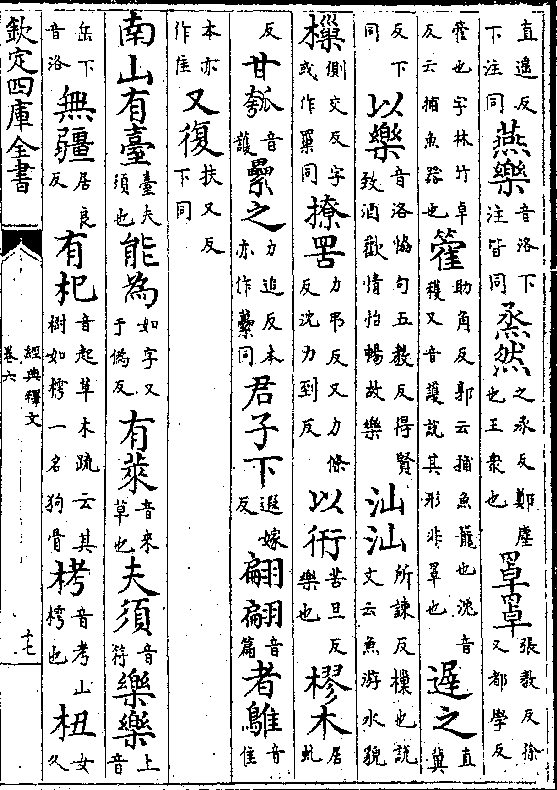 直遥反下注同燕樂音洛下注皆同烝然之承反鄭塵也王衆也罩罩張教反徐又都學反
篧也字林竹卓反云捕魚器也籗助角反郭云捕魚籠也沈音穫又音護說其形非罩也遲之直兾
反下同以樂音洛協句五教反得賢致酒歡情怡暢故樂汕汕所諫反樔也說文云魚游水貌
樔側交反字或作罺同撩罟力弔反又力條反沈力到反以衎苦旦反樂也樛木居虬
反甘瓠音護纍之力追反本亦作虆同君子下遐嫁反翩翩音篇者鵻音隹
本亦作隹又復扶又反下同
南山有臺臺夫須也能為如字又于偽反有萊音來草也夫須音符樂樂上音
岳下音洛無疆居良反有杞音起草木疏云其樹如樗一名狗骨栲音考山樗也杻女久
欽定四庫全書
經典釋文
卷六
十七